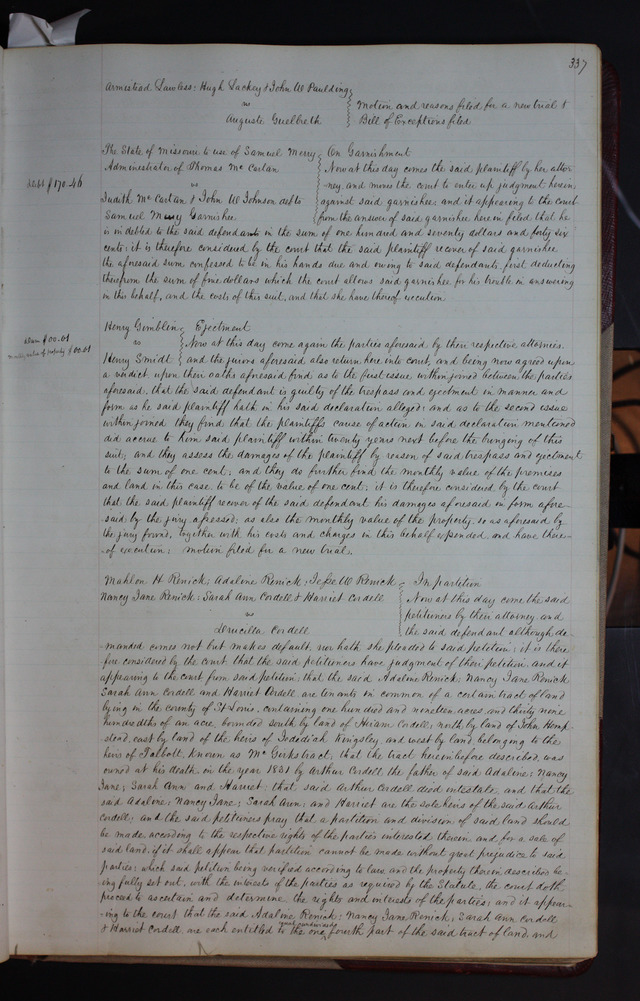 337
Armistead Lawless: Hugh Lackey & John W Paulding
vs
Auguste Guelbreth
Motion and reasons filed for a new trial &
Bill of Exceptions filed
The State of Missouri to use of Samuel Merry
Administrator of Thomas Mc Cartan
vs
Judith Mc Cartan & John W Johnson debts
Samuel Merry Garnishee
On Garnishment
Now at this day comes the said plaintiff by her attor-
ney, and moves the court to enter up judgment herein
against said garnishee: and it appearing to the court
from the answer of said garnishee herein filed, that he
debt $170.46
is indebted to the said defendants in the sum of one hundred and seventy dollars and forty six
cents; it is therefore considered by the court that the said plaintiff recover of said garnishee
the aforesaid sum confessed to be in his hands due and owing to said defendants, first deducting
therefrom the sum of five dollars which the court allows said garnishee for his trouble in answering
in this behalf, and the costs of this suit, and that she have thereof execution
Henry Gimblin
vs
Henry Smidt
Ejectment
Now at this day come again the parties aforesaid by their respective attornies.
dam $00.01
monthly value of property $00.01
and the jurors aforesaid also return here into court, and being now agreed upon
a verdict upon their oaths aforesaid find, as to the first issue within joined between the parties
aforesaid, that the said defendant is guilty of the trespass and ejectment in manner and
form as he said plaintiff hath in his said declaration alleged; and as to the second issue
within joined they find that the plaintiffs cause of action in said declaration mentioned
did accrue to him said plaintiff within twenty years next before the bringing of this
suit; and they assess the damages of the plaintiff by reason of said trespass and ejectment
to the sum of one cent; and they do further find the monthly value of the premises
and land in this case to be of the value of one cent; it is therefore considered by the court
that the said plaintiff recover of the said defendant his damages aforesaid in form afore-
said by the jury assessed; as also the monthly value of the property so as aforesaid by
the jury found, together with his costs and charges in this behalf expended, and have there-
of execution; motion filed for a new trial.
Mahlon H Renick; Adaline Renick; Jesse W Renick
Nancy Jane Renick: Sarah Ann Cordell & Harriet Cordell
vs
Drucilla Cordell
In partition
Now at this day come the said
petitioners by their attorney, and
the said defendant although de-
manded comes not but makes default nor hath she pleaded to said petition; it is there-
fore considered by the court that the said petitioners have judgment of their petition. and it
appearing to the court from said petition, that the said Adaline Renick; Nancy Jane Renick
Sarah Ann Cordell and Harriet Cordell are tenants in common of a certain tract of land
lying in the county of St Louis, containing one hundred and nineteen acres, and thirty nine
hundredths of an acre, bounded south by land of Hiram Cordell; north by land of John Hemp-
stead, east by land of the heirs of Jedediah Kingsley, and west by land belonging to the
heirs of Talbott, known as Mc Girks tract; that the tract hereinbefore described, was
owned at his death, in the year 1831 by Arthur Cordell, the father of said Adaline; Nancy
Jane; Sarah Ann and Harriet; that said Arthur Cordell died intestate, and that the
said Adaline; Nancy Jane; Sarah Ann; and Harriet are the sole heirs of the said Arthur
Cordell; and the said petitioners pray that a partition and division of said land should
be made according to the respective rights of the parties interested therein and for a sale of
said land, if it shall appear that partition cannot be made without great prejudice to said
parties; which said petition being verified according to law, and the property therein described be-
ing fully set out, with the interests of the parties as required by the Statute, the court doth
proceed to ascertain and determine the rights and interests of the parties; and it appear-
ing to the court that the said Adaline Renick; Nancy Jane Renick; Sarah Ann Cordell
& Harriet Cordell are each entitled to the one fourth part of the said tract of land, and